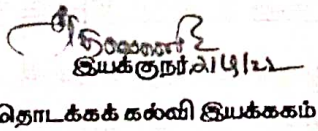 இயக்குநர் 21/4/22
தொடக்கக் கல்வி இயக்ககம்